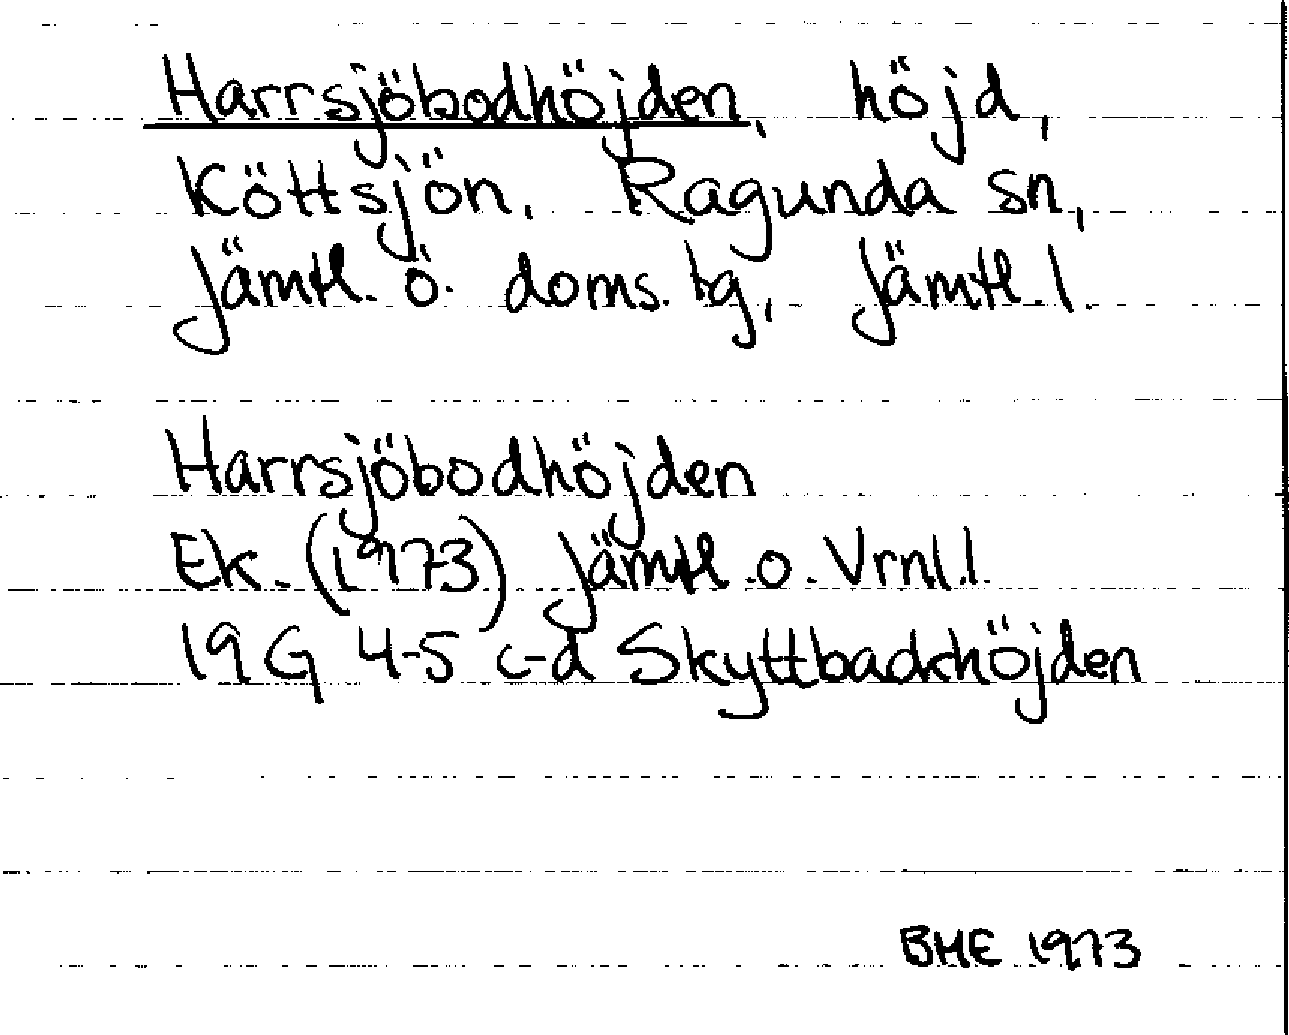 Harrsjöbodhöjden, höjd,
Köttsjön, Ragunda sn,
Jämtl. ö. doms. tg, Jämtl. l.
Harrsjöbodhöjden
Ek. (1973) Jämtl. o. Vrnl. l.
19 G 4-5 c-d Skyttbackhöjden
BHE 1973